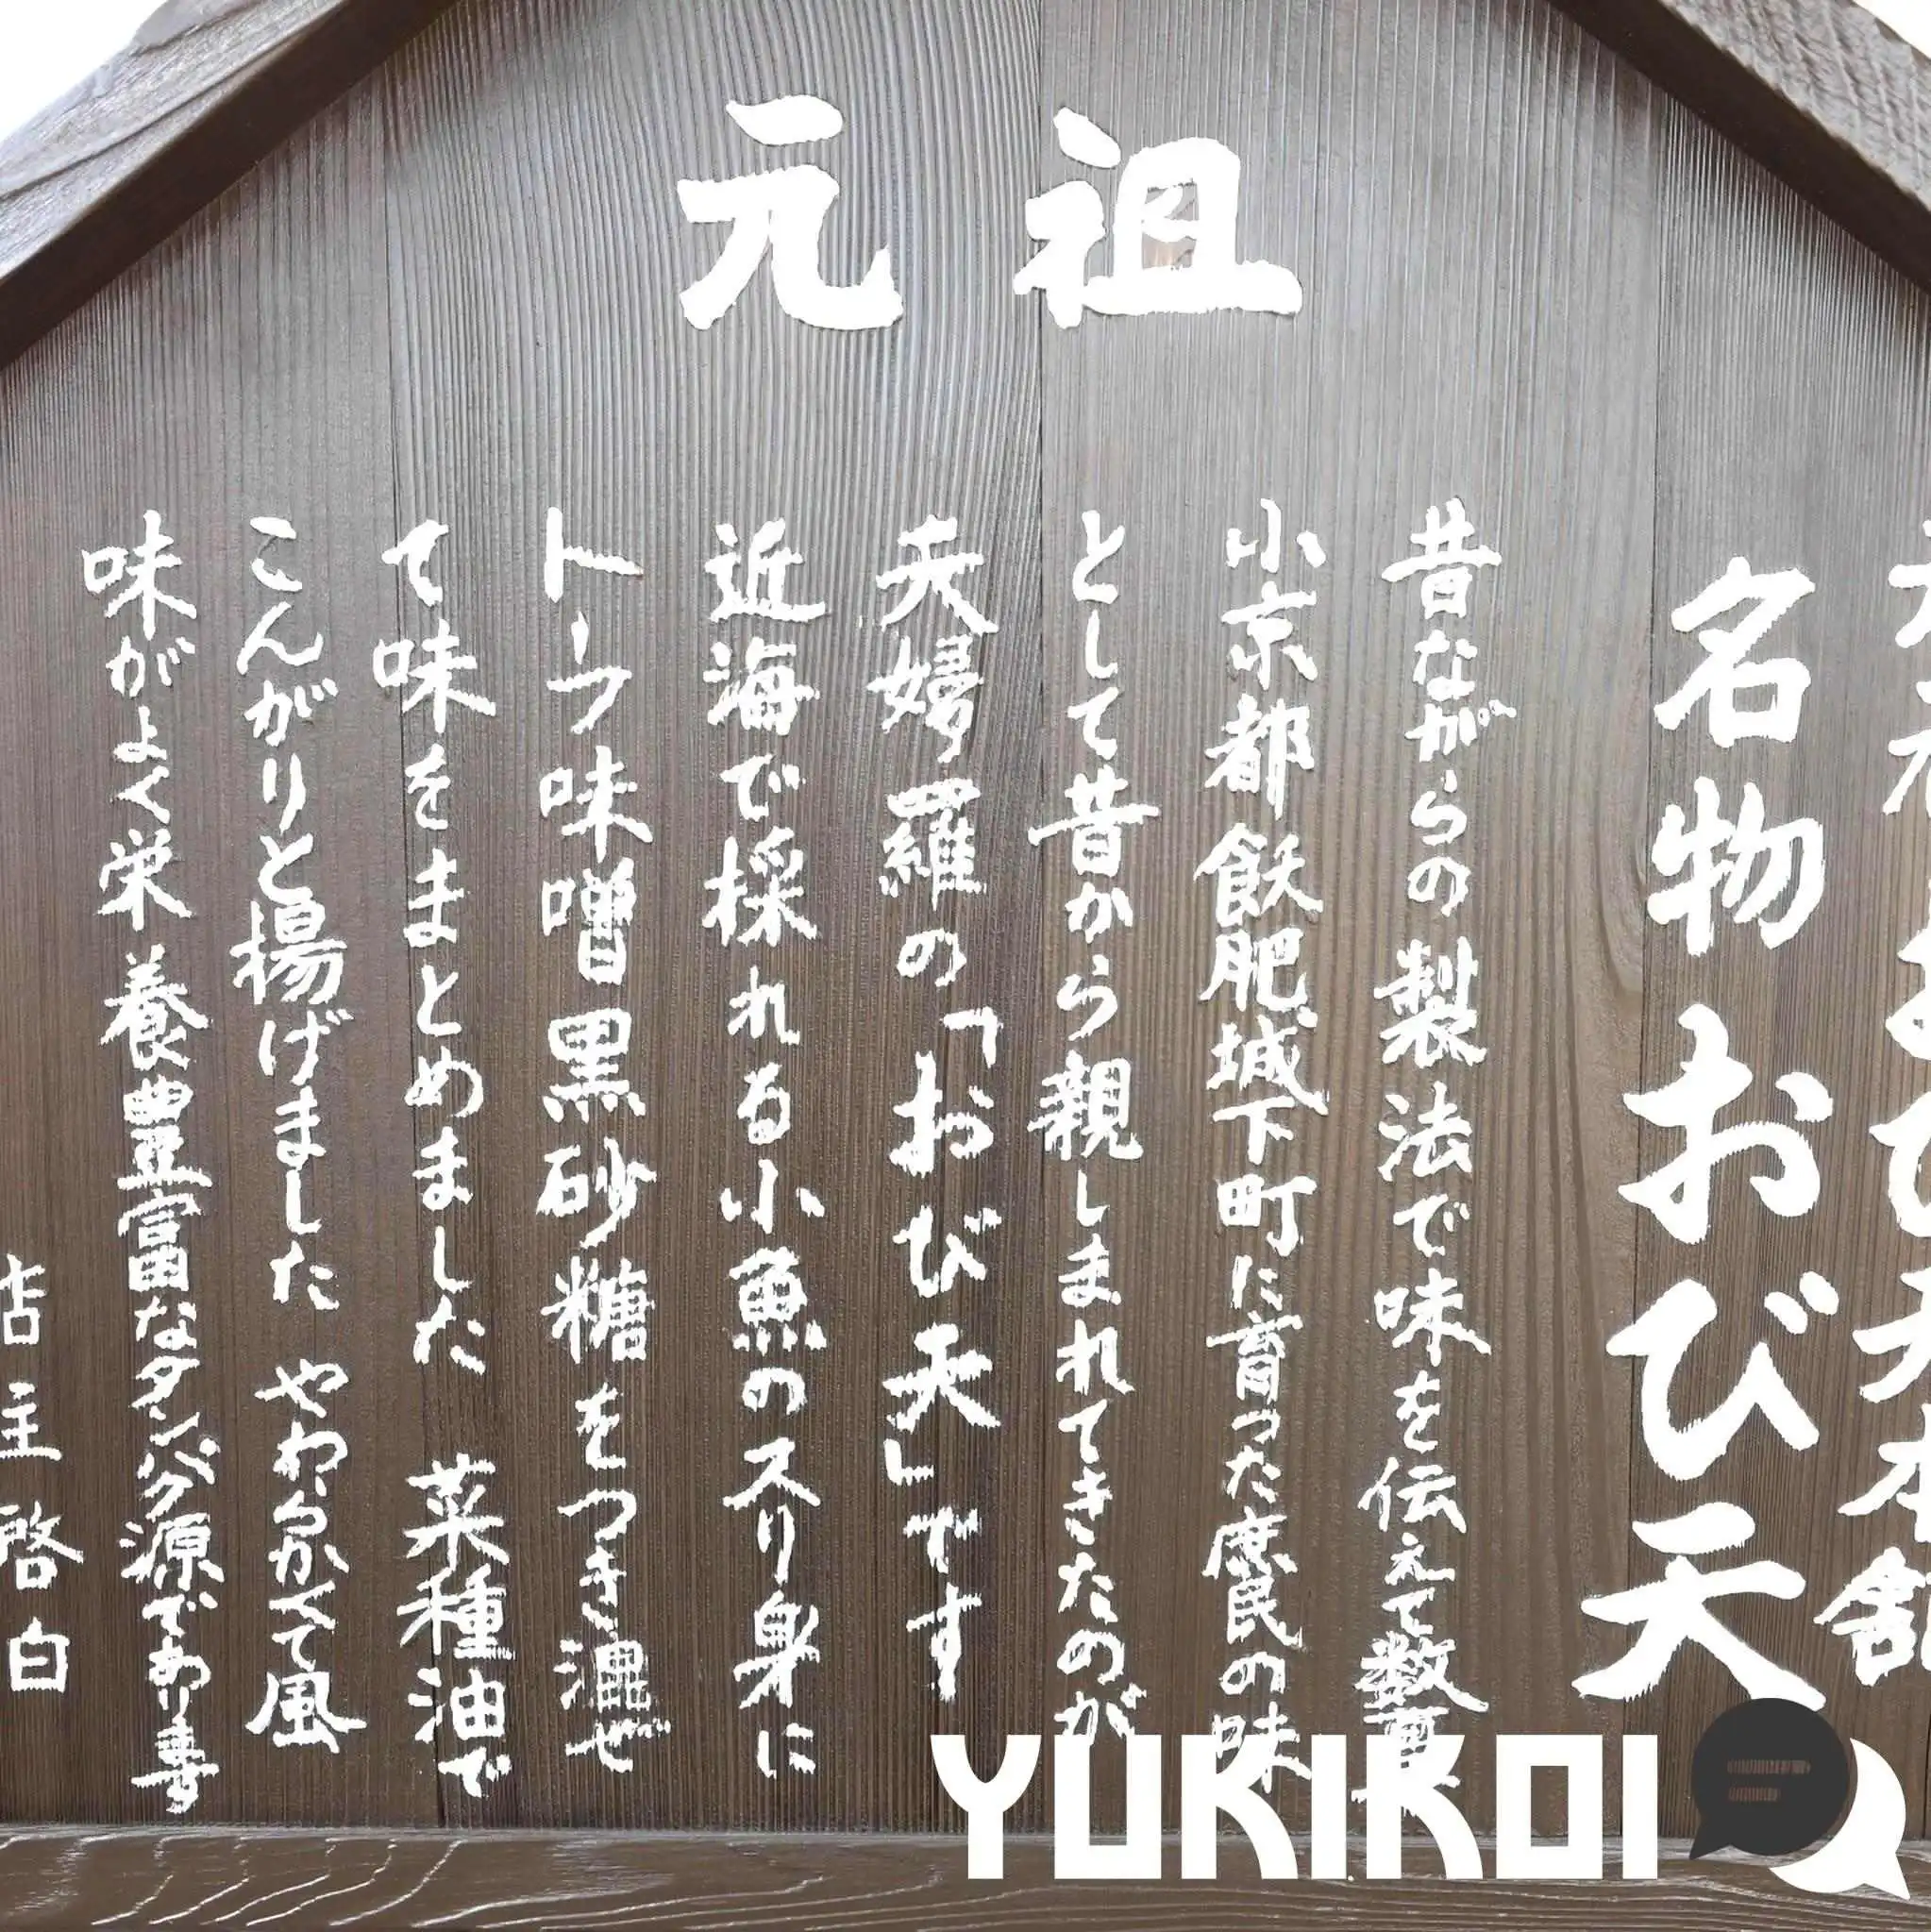 元祖
おび天本舗
名物おび天
昔ながらの製法で味を伝えて数百年
小京都飫肥城下町に育った庶民の味
として昔から親しまれてきたのが
天婦羅の「おび天」です
近海で採れる小魚のスリ身に
トーフ味噌黒砂糖をつき混ぜ
て味をまとめました 菜種油で
こんがりと揚げました やわらかくて風
味がよく栄養豊富なタンパク源であります
店主啓白
YUKIKOI